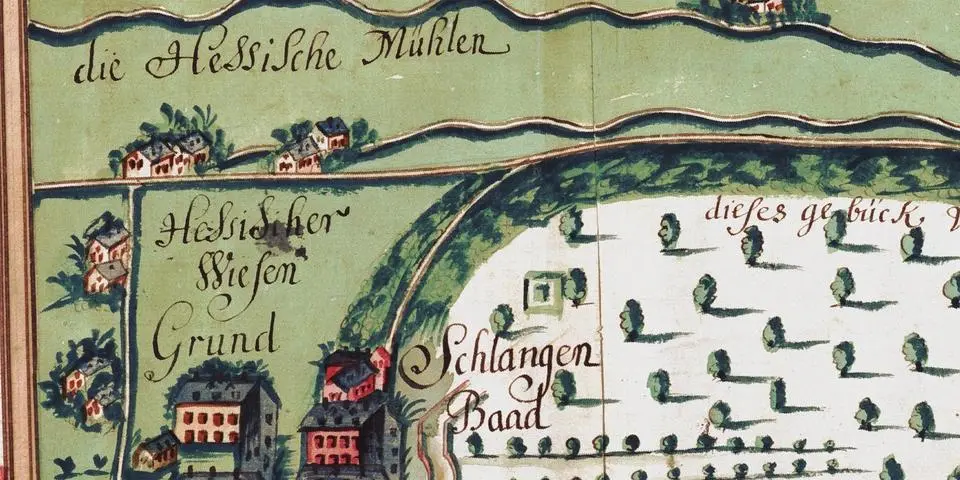 die Hessische Mühlen
dieses gebück
Hessischer
Wiesen
Grund
Schlangen
Baad